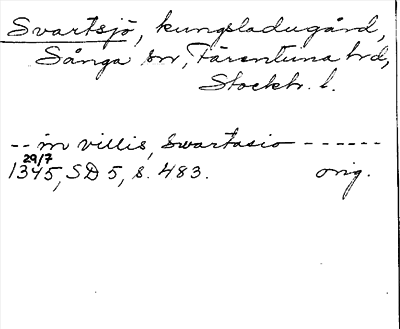 Svartsjö, kungsladugård,
Sånga sn, Färentuna hd,
Stockh. l.
-- in villis, Swartasio ------
29/7
1345, SD 5, s. 483. orig.